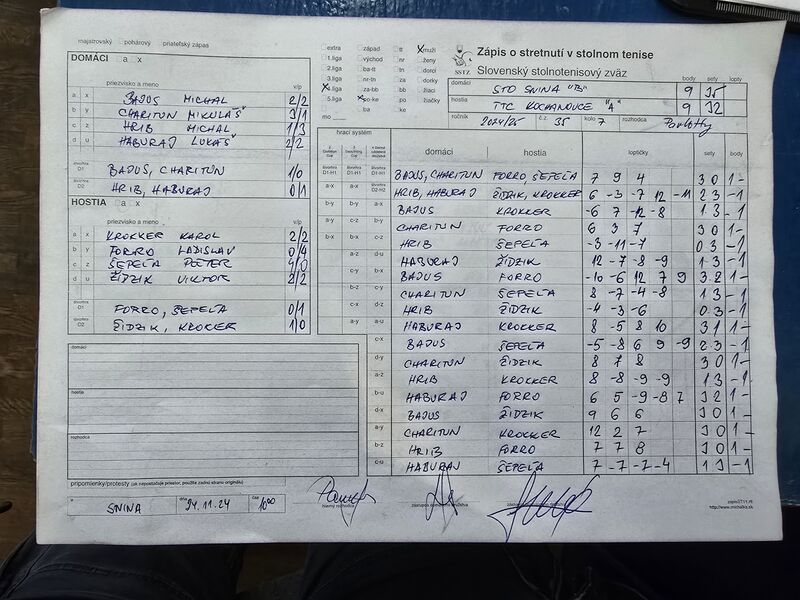 majstrovský pohárový priateľský zápas
DOMÁCI a x
priezvisko a meno v/p
a x BAJUS MICHAL 2/2
b y CHARITUN MIKULÁŠ 3/1
c z HRIB MICHAL 1/3
d u HABURAJ LUKÁŠ 2/2
štvorhra D1 BAJUS, CHARITUN 1/0
D2 HRIB, HABURAJ 0/1
HOSTIA a x
priezvisko a meno v/p
a x KROKKER KAROL 2/2
b y FORRO LADISLAV 0/4
c z ŠEPEĽA PETER 4/0
d u ŽIDZIK VIKTOR 2/2
štvorhra D1 FORRO, ŠEPEĽA 0/1
D2 ŽIDZIK, KROKKER 1/0
domáci
hostia
rozhodca
pripomienky/protesty (ak nepostačuje priestor, použite zadnú stranu originálu)
v SNINA dňa 24.11.24 čas 10:00
extra západ tt muži
1.liga východ nr ženy
2.liga ba-tt tn dorci
3.liga nr-tn za dorky
4.liga za-bb bb žiaci
5.liga po-ke po žiačky
ba ke
mo
SSTZ
Zápis o stretnutí v stolnom tenise
Slovenský stolnotenisový zväz
body sety lopty
domáci STO SNINA "B" 9 35
hostia TTC KOCHANOVCE "A" 9 32
ročník 2024/25 č.z. 35 kolo 7 rozhodca
hrací systém domáci hostia loptičky sety body
D1-H1 D1-H1 D1-H1 BAJUS, CHARITUN FORRO, ŠEPEĽA 7 9 4 3 0 1 -
a-x a-x D2-H2 HRIB, HABURAJ ŽIDZIK, KROKKER 6 -3 -7 12 -11 2 3 - 1
b-y b-y a-x BAJUS KROKKER -6 7 -12 -8 1 3 - 1
a-y c-z b-y CHARITUN FORRO 6 3 7 3 0 1 -
b-x b-x c-z HRIB ŠEPEĽA -3 -11 -7 0 3 - 1
a-z d-u HABURAJ ŽIDZIK 12 -7 -8 -9 1 3 - 1
c-y b-x BAJUS FORRO -10 -6 12 7 9 3 2 1 -
b-z CHARITUN ŠEPEĽA 8 -7 -4 -8 1 3 - 1
c-x d-z HRIB ŽIDZIK -4 -3 -6 0 3 - 1
a-y a-u HABURAJ KROKKER 8 -5 8 10 3 1 1 -
c-x BAJUS ŠEPEĽA -5 -8 6 9 -9 2 3 - 1
d-y CHARITUN ŽIDZIK 8 7 8 3 0 1 -
a-z HRIB KROKKER 8 -8 -9 -9 1 3 - 1
b-u HABURAJ FORRO 6 5 -9 -8 7 3 2 1 -
d-x BAJUS ŽIDZIK 9 6 6 3 0 1 -
a-y CHARITUN KROKKER 12 2 7 3 0 1 -
b-z HRIB FORRO 7 7 8 3 0 1 -
c-u HABURAJ ŠEPEĽA 7 -7 -7 -4 1 3 - 1
hlavný rozhodca
http://www.michalko.sk